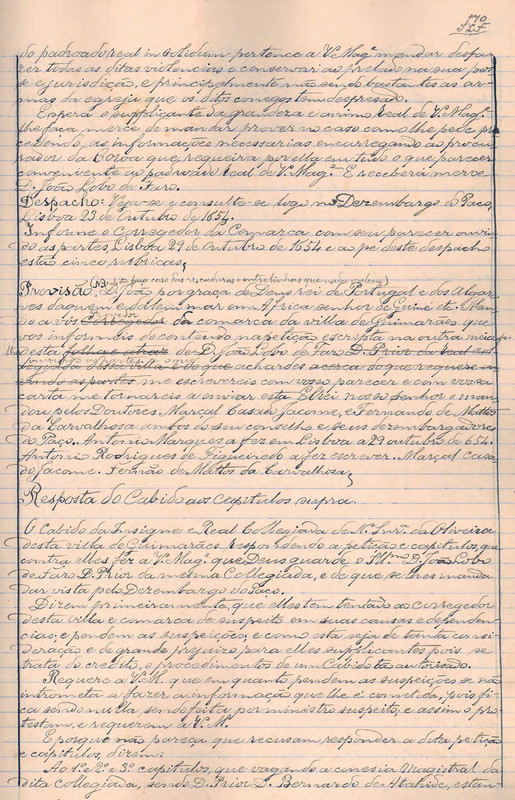 170
do padroado real in solidum pertence a V. Mag.e mandar desfa-
zer todas as ditas violencias e conservar ao prelado na sua pos-
se e jurisdição, e principalmente não sendo bastantes as ar-
mas da egreja que os ditos conegos tem desprezado.
Espera o supplicante da grandeza e animo real de V. Mag.e
lhe faça mercê de mandar prover no caso como lhe pede, pre-
cedendo, as informações necessarias encarregando ao procu-
rador da Coroa que requeira por ella em tudo o que parecer
conveniente ao padroado Real de V. Mag.e E receberá mercê
D. João Lobo de Faro.
Despacho: Veja-se e consulte-se logo no Dezembargo do Paço,
Lisboa 23 de Outubro de 1654.
Informe o Corregedor da Comarca com seu parecer ouvin-
do as partes, Lisboa 29 de Outubro de 1654 e ao pé deste despacho
estão cinco rubricas;
(Não faça caso das riscaduras e entrelinhas que
Provisão. D. João por graça de Deus rei de Portugal e dos Algar-
ves daquem e d'alem mar em Africa senhor de Guiné etc. Man-
Provedor
do a vós Corregedor da comarca da villa de Guimarães que
vos informeis do contendo na petição escripta na outra meia fo-
lha desta folhas atraz de D. João Lobo de Faro D. Prior da Real Col-
legiada
achardes acerca do que requere
me escrevereis com vosso parecer e com vossa
carta me tornareis a enviar esta. El-rei nosso senhor o man-
dou pelos Doutores Marçal Casado Jacome, e Fernando de Mattos
da Carvalhosa ambos do seu conselho e seus dezembargadores
do Paço. Antonio Marques a fez em Lisboa a 29 outubro de 654.
Antonio Rodrigues de Figueiredo a fez escrever. Marçal Casa-
do Jacome. Fernão de Mattos da Carvalhosa;
Resposta do Cabido aos capitulos supra.
O Cabido da Insigne e Real Collegiada de N. Snr.a da Oliveira
desta villa de Guimarães respondendo a petição e capitulos, que
contra elles fez a V. Mag.e que Deus guarde, o Ill.mo D. João Lobo
de Faro D. Prior da mesma Collegiada, e de que se lhes manda
dar vista pelo Dezembargo do Paço.
Dizem primeiramente, que elles tem tentado ao corregedor
desta villa e comarca de suspeito em suas causas e dependen-
cias; e pendem as suspeições; e como esta seja de tanta consi-
deração e de grande prejuizo para elles supplicantes pois se
trata do credito, e procedimentos de um Cabido tão autorisado.
Requere a V. M. que em quanto pendem as suspeições se não
intrometa a fazer a informação que lhe é cometida, pois fi-
ca sendo nulla, sendo feita por ministro suspeito; e assim o pro-
testam, e requerem a V. M.
E porque não pareça que recusam responder a dita petição
e capitulos, dizem:
Ao 1.º e 2.º e 3.º capitulos, que vagando a conesia Magistral da
dita Collegiada, sendo D. Prior D. Bernardo de Atahide, estan-